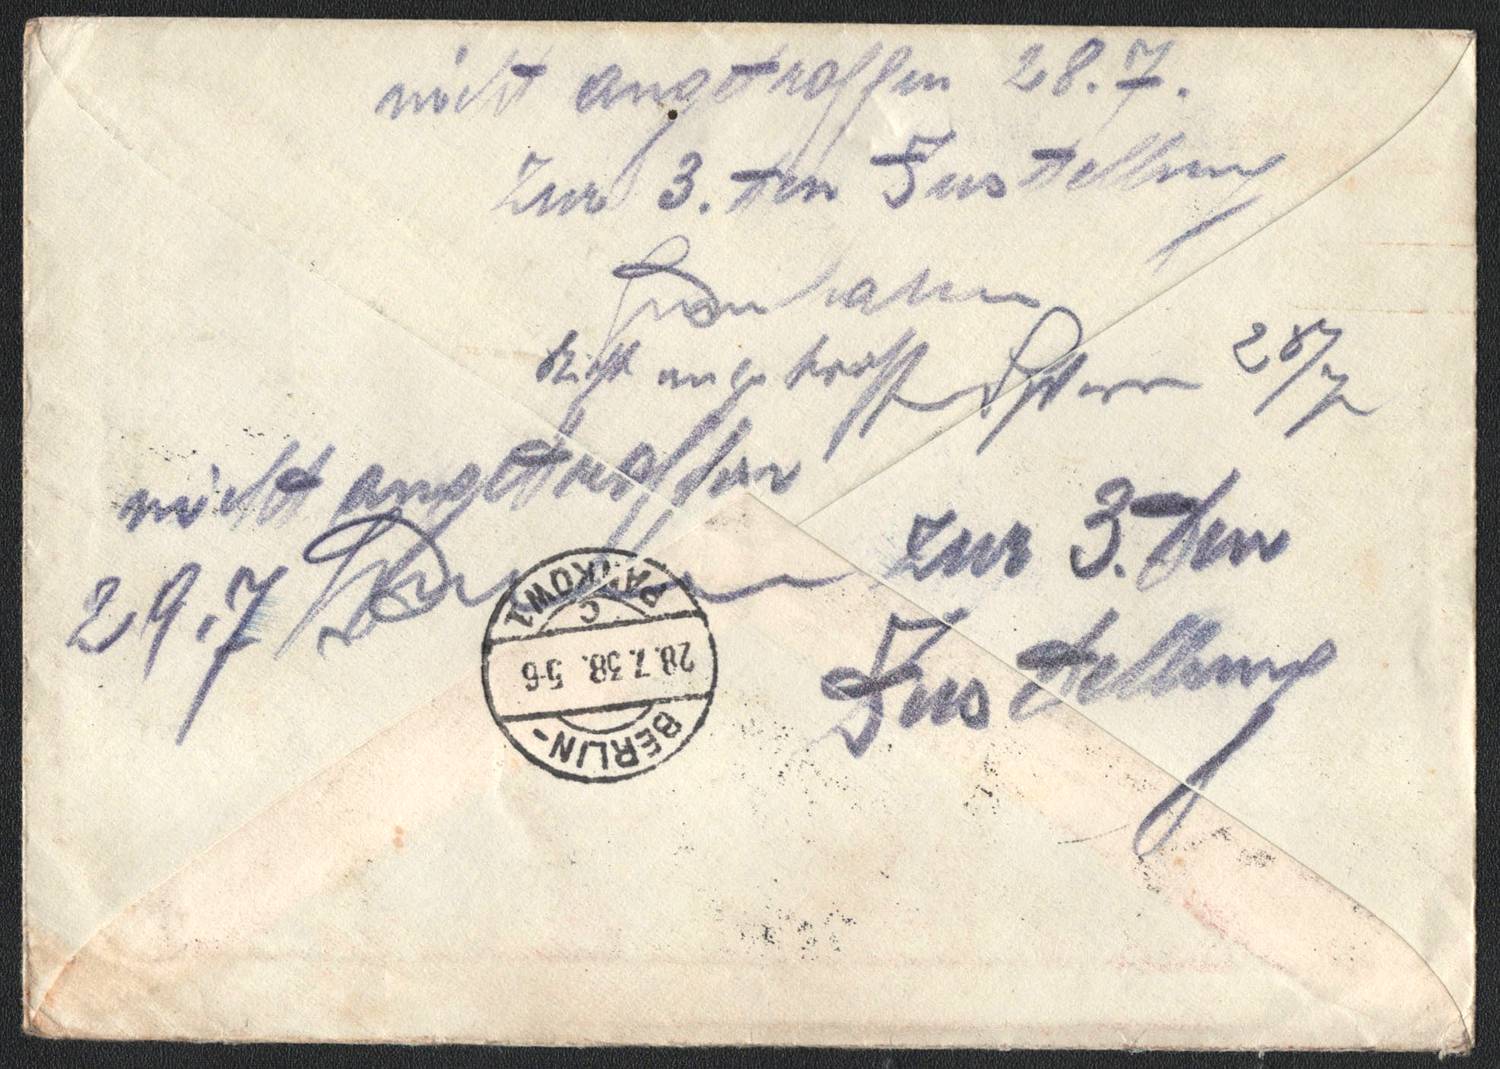 nicht angetroffen 28.7.
Zur 3. ten Zustellung
nicht angetroff 28/7
nicht angetroffen
29.7
zur 3. ten
Zustellung
BERLIN-
28.7.38. 5-6
C
PANKOW 1